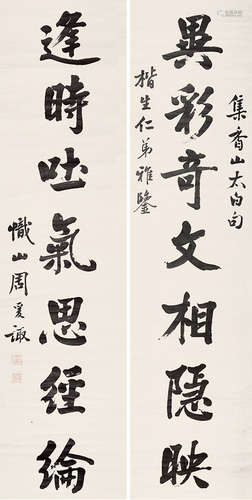 集香山太白句
異彩奇文相隱映
楷生仁弟雅鑒
逢時吐氣思經綸
幟山周爰諏